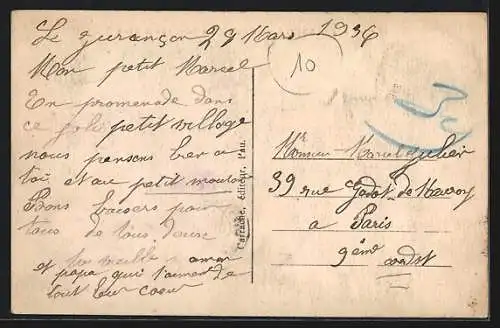 Le gurançon 29 Mars 1936
Mon petit Marcel
En promenade dans
ce joli petit village
nous pensons bien a
toi et au petit mouton
Bons baisers pour
tous de tous deux
ta vieille maman
et papa qui t'aiment de
tout leur coeur
10
30
Carrache, éditeur, Pau.
Mr
Monsieur Marcel
39 rue Godot de Mauroy
a Paris
9ème